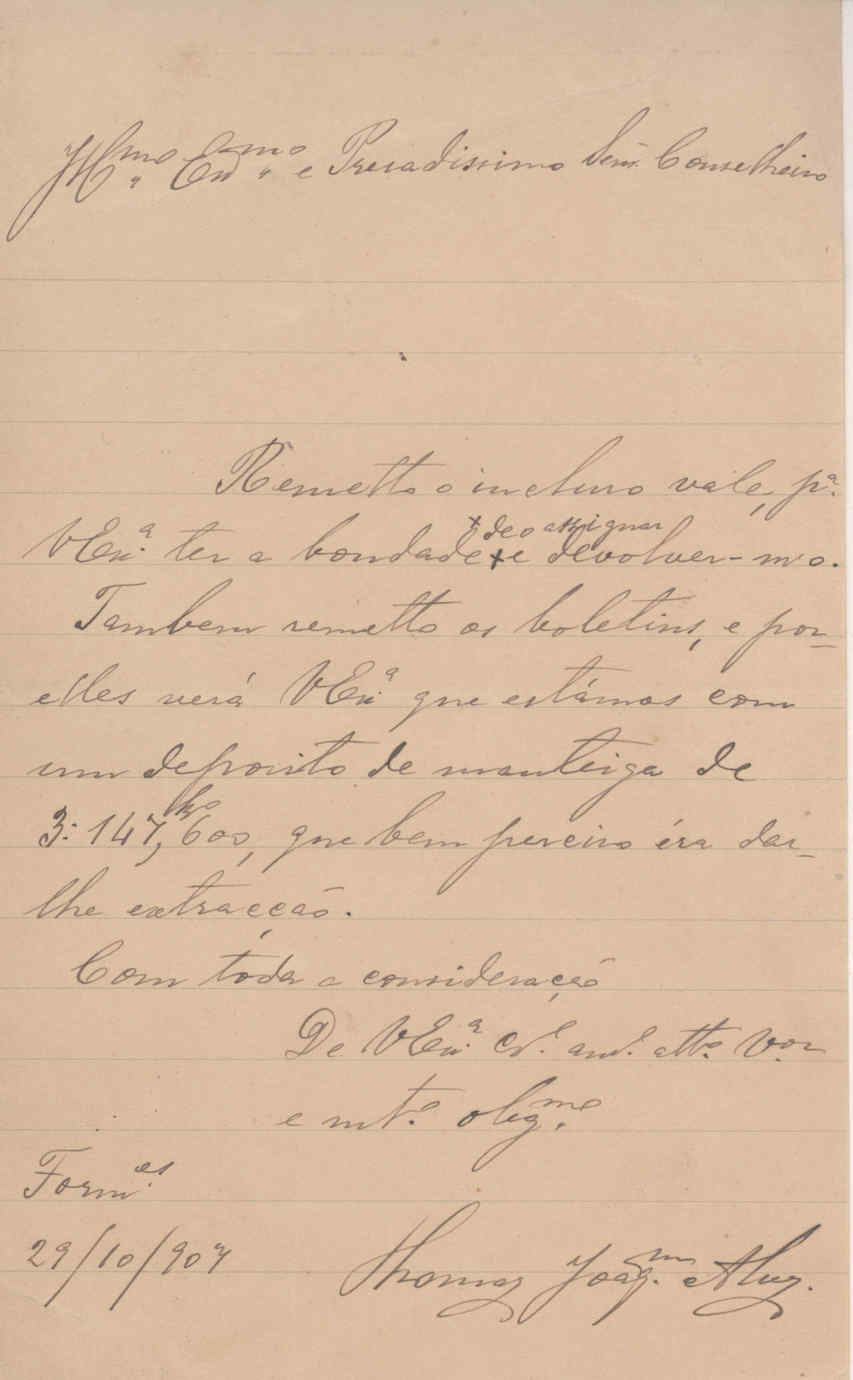 Illmo. Exmo. e Presadissimo Senr. Conselheiro
Remetto o incluso vale, pª.
VExª. ter a bondade + e devolver-m'o.
+ de o assignar
Tambem remetto os boletins, e por
elles verá VExª que estámos com
um deposito de manteiga de
3:147,600, que bem preciso éra dar-
kos
lhe extracção.
Com toda a consideração
De VExª. Cr.º am.º att.º V.or
e mt.º obgmo.
Form.es
29/10/907
Thomaz Joaqm. Alvz.